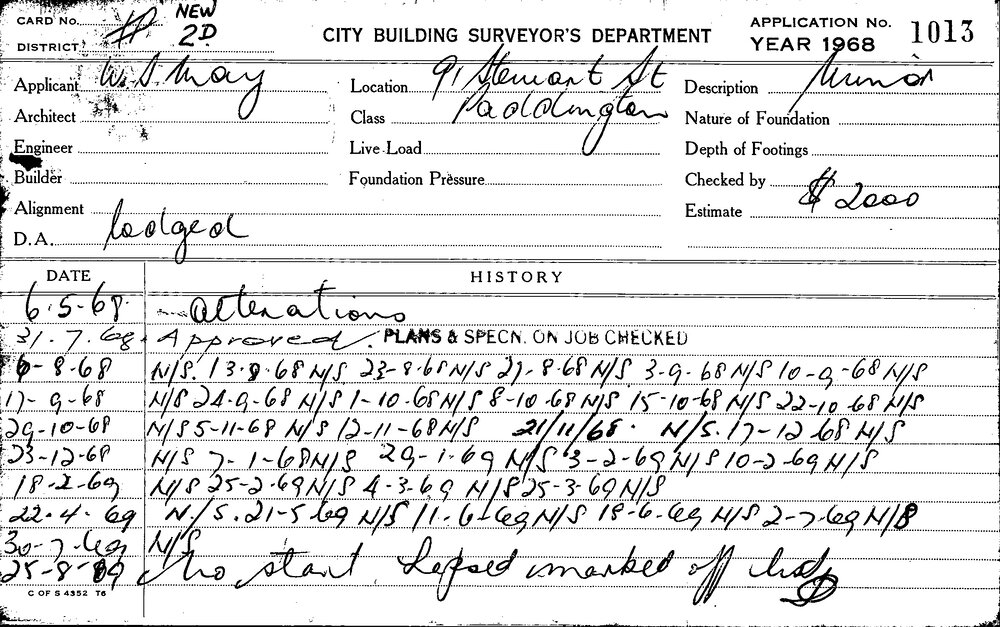 CARD No. NEW
DISTRICT 2D
CITY BUILDING SURVEYOR'S DEPARTMENT
APPLICATION No. 1013
YEAR 1968
Applicant W.S. May Location 91 Stewart St Description Minor
Architect Class Paddington Nature of Foundation
Engineer Live Load Depth of Footings
Builder Foundation Pressure Checked by
Alignment Estimate $ 2000
D.A. lodged
DATE HISTORY
6.5.68. alterations
31.7.68. Approved. PLANS & SPECN. ON JOB CHECKED
6-8-68 N/S. 13-8-68 N/S 23-8-68 N/S 27-8-68 N/S 3-9-68 N/S 10-9-68 N/S
17-9-68 N/S 24-9-68 N/S 1-10-68 N/S 8-10-68 N/S 15-10-68 N/S 22-10-68 N/S
29-10-68 N/S 5-11-68 N/S 12-11-68 N/S 21/11/68. N/S. 17-12-68 N/S
23-12-68 N/S 7-1-68 N/S 29-1-69 N/S 3-2-69 N/S 10-2-69 N/S
18-2-69 N/S 25-2-69 N/S 4-3-69 N/S 25-3-69 N/S
22.4.69 N/S. 21-5-69 N/S 11-6-69 N/S 18-6-69 N/S 2-7-69 N/S
30-7-69 N/S
25-8-69 No start Lapsed marked off
C OF S 4352 T6